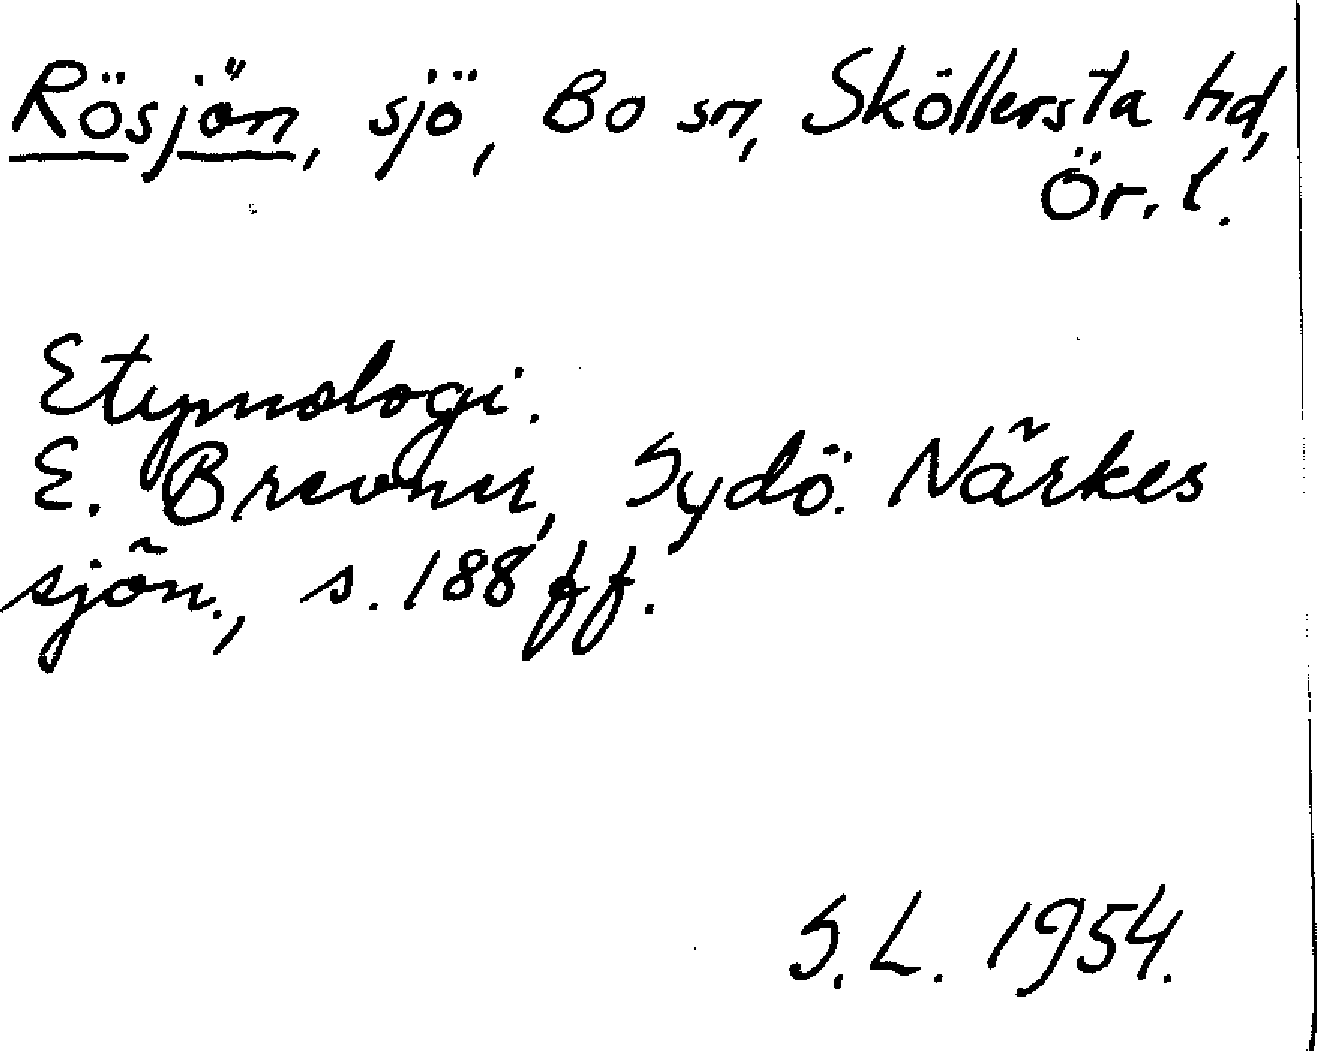 Rösjön, sjö, Bo sn, Sköllersta hd,
Ör. l.
Etymologi.
E. Brevner, Sydö. Närkes
sjön., s. 188 ff.
S. L. 1954.